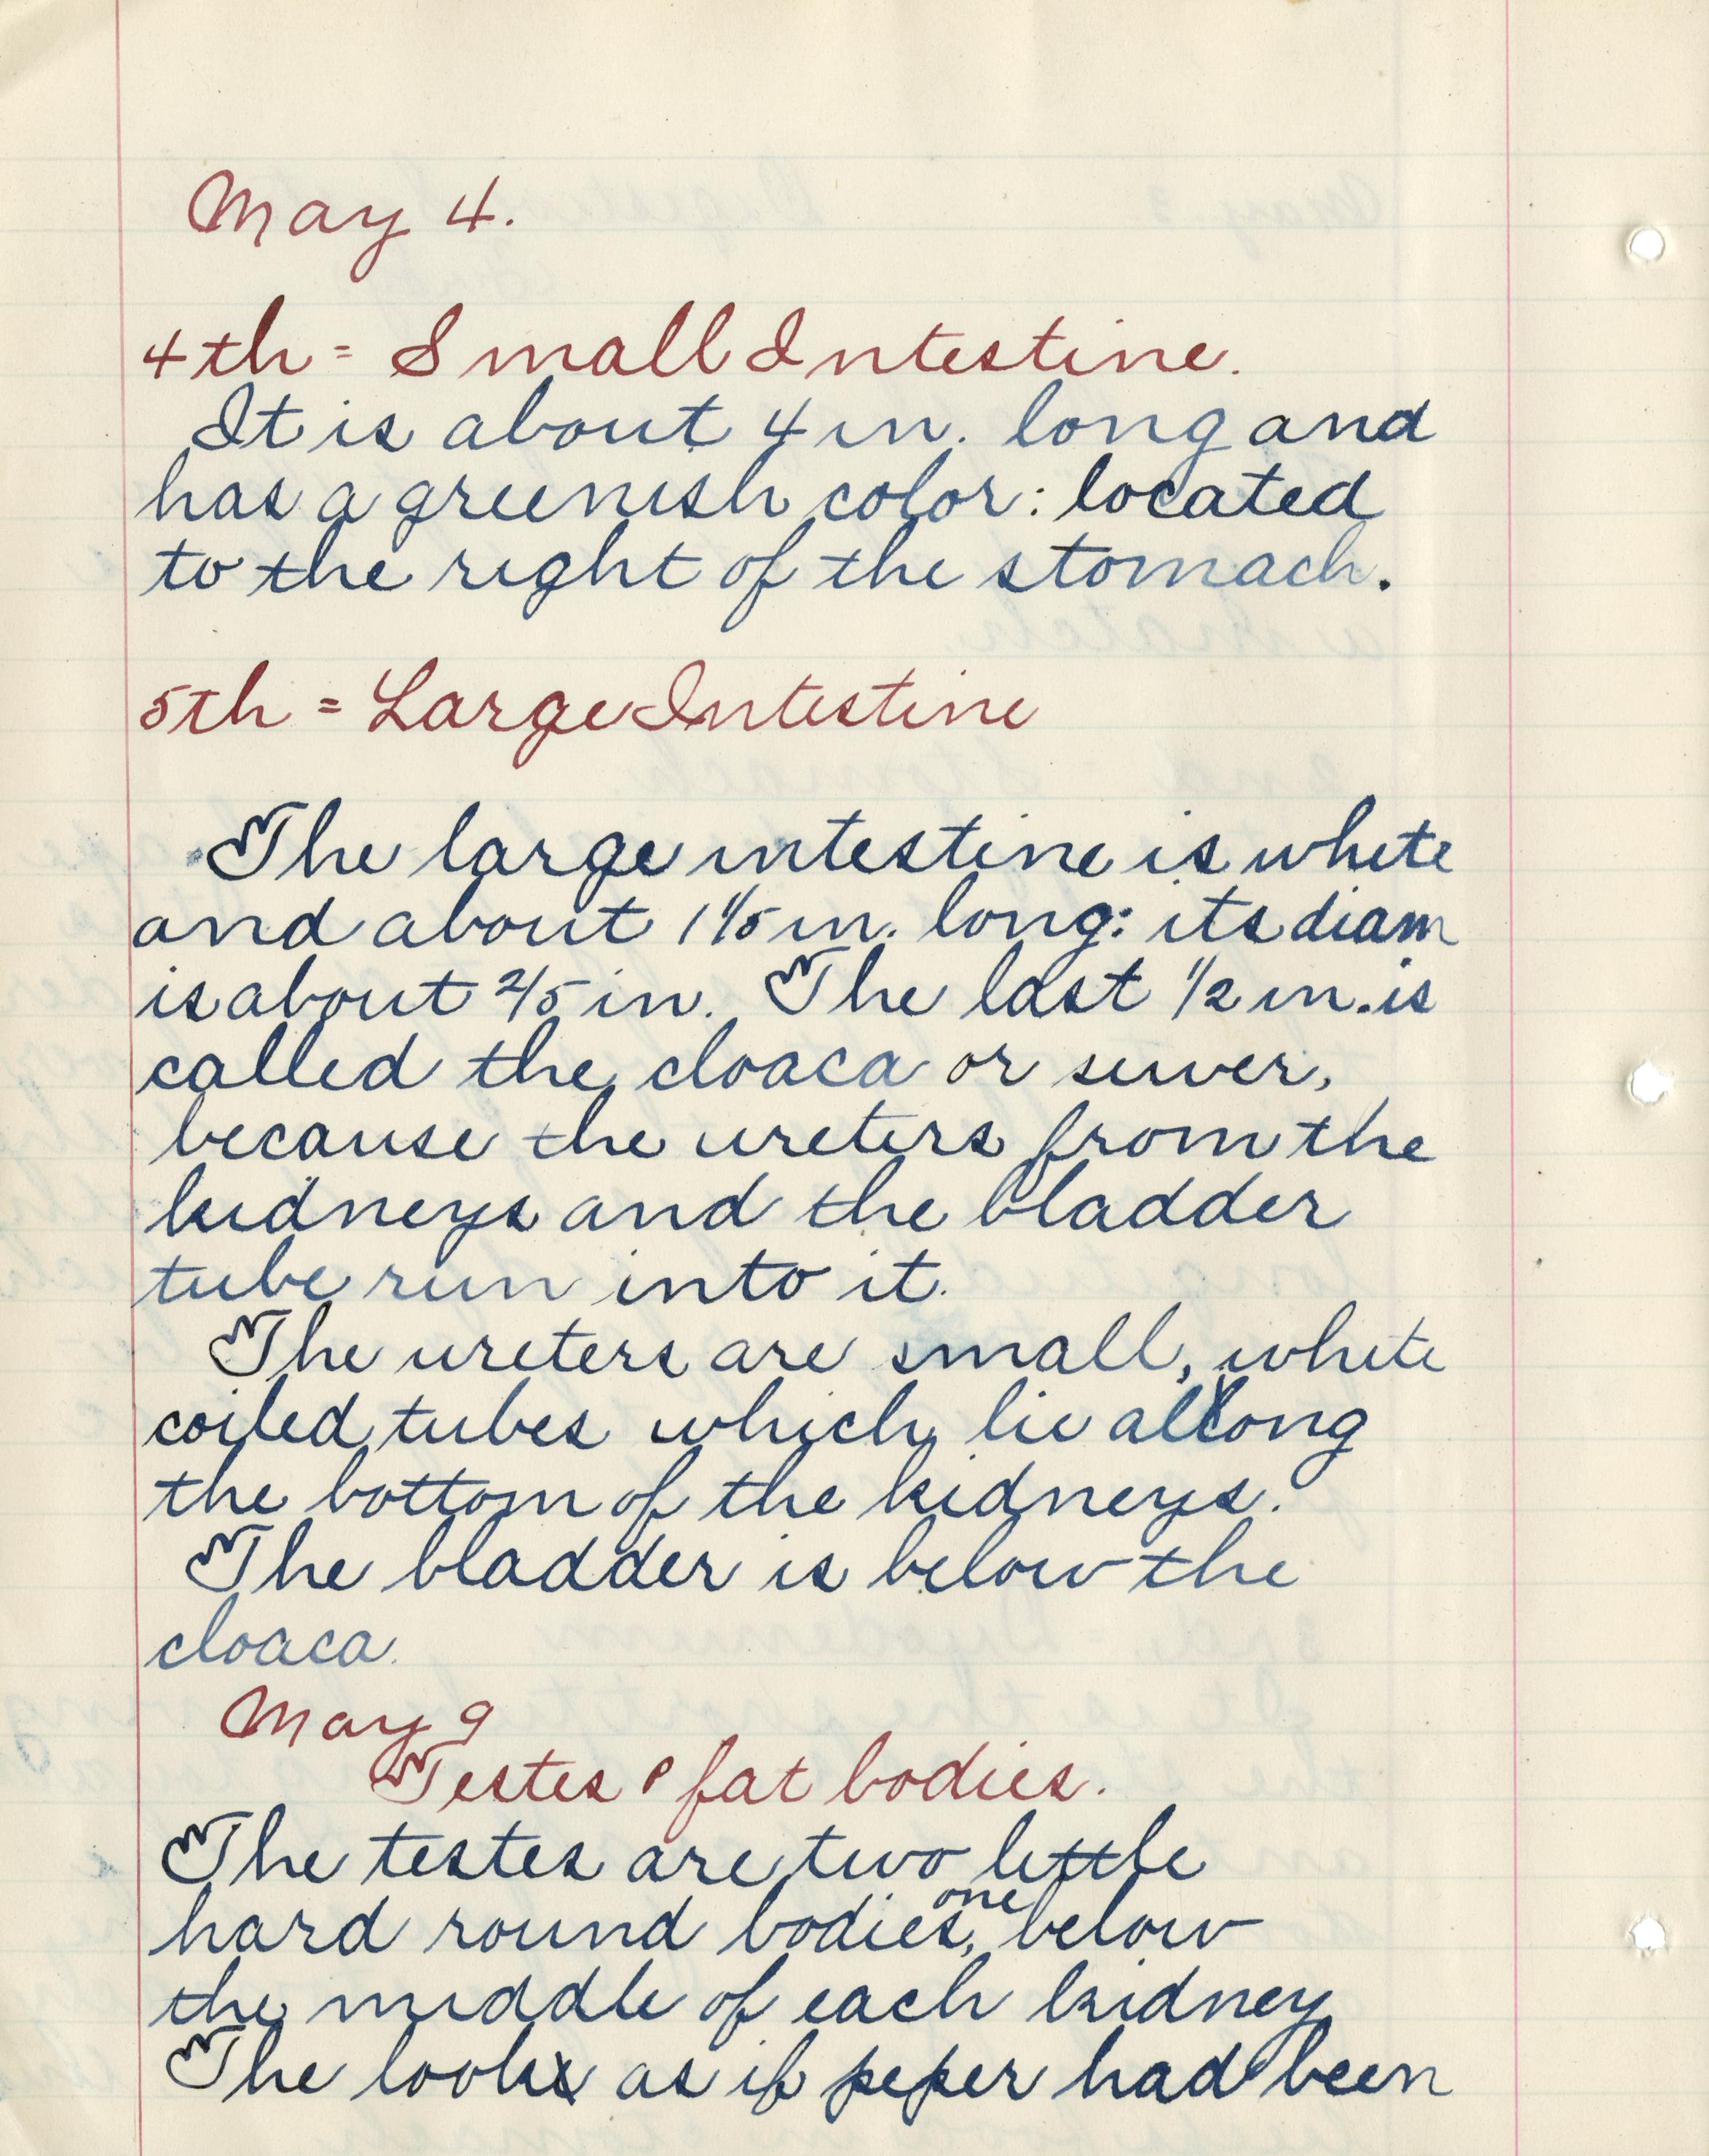 May 4.
4th = Small Intestine.
It is about 4 in. long and
has a greenish color: located
to the right of the stomach.
5th = Large Intestine
The large intestine is white
and about 1 1/5 in. long: its diam
is about 2/5 in. The last 1/2 in. is
called the cloaca or sewer,
because the ureters from the
kidneys and the bladder
tube run into it.
The ureters are small, white
coiled tubes which lie allong
the bottom of the kidneys.
The bladder is below the
cloaca.
May 9
Testes & fat bodies.
The testes are two little
hard round bodies, one below
the middle of each kidney
The looks as if peper had been